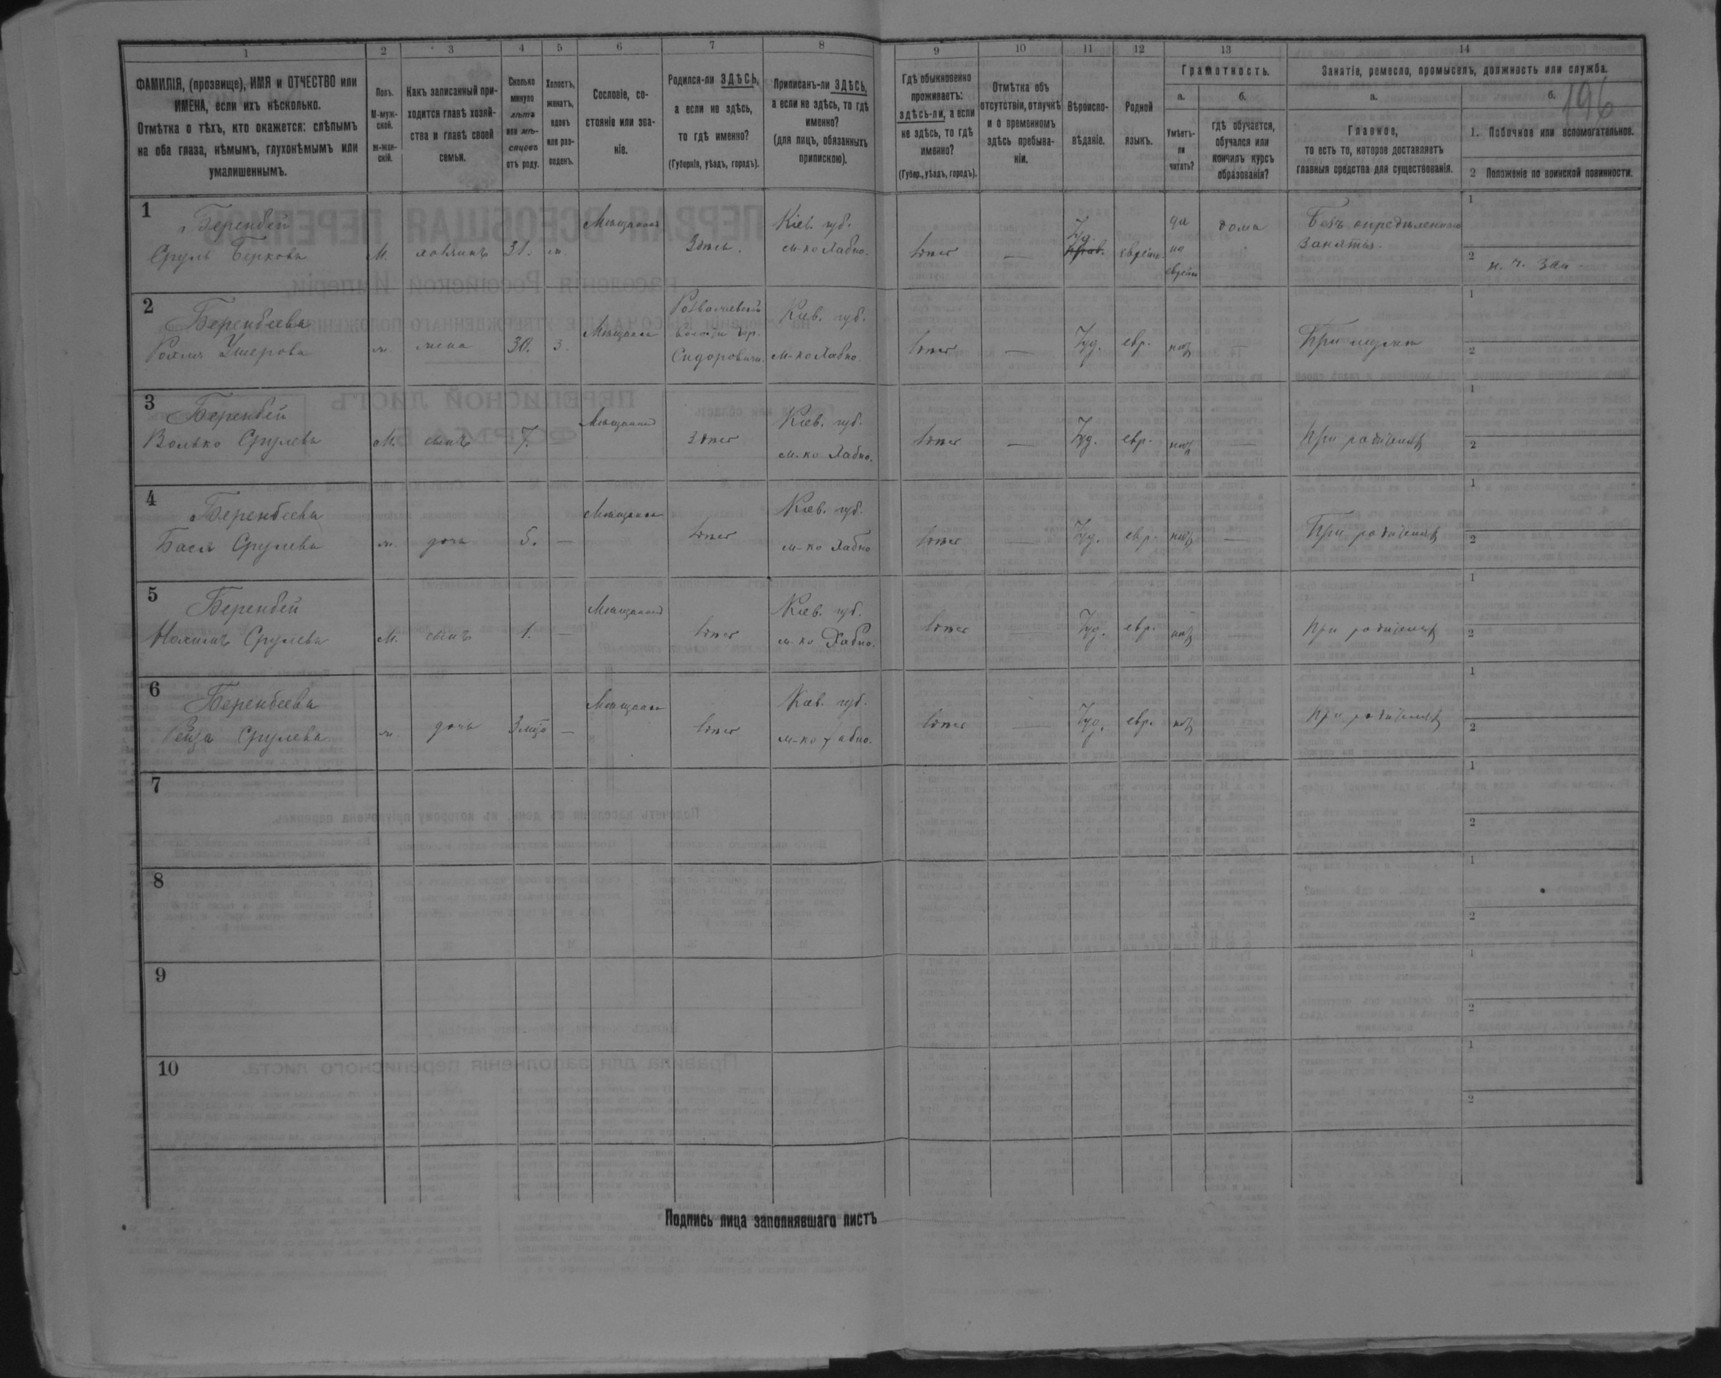 1 2 3 4 5 6 7 8 9 10 11 12 13 14
196
ФАМИЛІЯ, (прозвище), ИМЯ и ОТЧЕСТВО или
ИМЕНА, если ихъ нѣсколько.
Отмѣтка о тѣхъ, кто окажется: слѣпымъ
на оба глаза, нѣмымъ, глухонѣмымъ или
умалишеннымъ.
Полъ.
М-муж-
ской.
ж-жен-
скій.
Какъ записанный при-
ходится главѣ хозяй-
ства и главѣ своей
семьи.
Сколько
минуло
лѣтъ
или мѣ-
сяцевъ
отъ роду.
Холостъ,
женатъ,
вдовъ
или раз-
веденъ.
Сословіе, со-
стояніе или зва-
ніе.
Родился-ли ЗДѢСЬ,
а если не здѣсь,
то гдѣ именно?
(Губернія, уѣздъ, городъ).
Приписанъ-ли ЗДѢСЬ,
а если не здѣсь, то гдѣ
именно?
(для лицъ, обязанныхъ
припискою).
Гдѣ обыкновенно
проживаетъ:
здѣсь-ли, а если
не здѣсь, то гдѣ
именно?
(Губер., уѣздъ, городъ).
Отмѣтка объ
отсутствіи, отлучкѣ
и о временномъ
здѣсь пребыва-
ніи.
Вѣроиспо-
вѣданіе.
Родной
языкъ.
Грамотность.
а.
Умѣетъ-
ли
читать?
б.
гдѣ обучается,
обучался или
кончилъ курсъ
образованія?
Занятіе, ремесло, промыселъ, должность или служба.
а.
Главное,
то есть то, которое доставляетъ
главныя средства для существованія.
б.
1. Побочное или вспомогательное.
2 Положеніе по воинской повинности.
1
Беренбей
Сруль Берковъ
М. хозяинъ 31. ж. Мѣщанинъ
Здѣсь.
Кіев. губ.
м-ко Хабно.
здѣсь — Іуд. еврейс.
да
по
еврейс
дома
Безъ опредѣленнаго
занятія.
1
2
2
Беренбеева
ж. жена 30. з. Мѣщанка
Сидоровичи
Кіев. губ.
м-ко Хабно.
здѣсь — Іуд. евр. нѣтъ —
При мужѣ
1
2
3
Беренбей
Волько Срулевъ
М. сынъ 7. — Мѣщанинъ
здѣсь
Кіев. губ.
м-ко Хабно.
здѣсь — Іуд. евр. нѣтъ —
При родителяхъ
1
2
4
Беренбеева
Бася Срулева
ж. дочь 5. — Мѣщанка
здѣсь
Кіев. губ.
м-ко Хабно
здѣсь — Іуд. евр. нѣтъ —
При родителяхъ
1
2
5
Беренбей
Срулевъ
М. сынъ 1. — Мѣщанинъ
здѣсь
Кіев. губ.
м-ко Хабно.
здѣсь — Іуд. евр. нѣтъ
При родителяхъ
1
2
6
Беренбеева
Срулева
ж. дочь — Мѣщанка
здѣсь
Кіев. губ.
м-ко Хабно.
здѣсь — Іуд. евр. нѣтъ
При родителяхъ
1
2
7
1
2
8
1
2
9
1
2
10
1
2
Подпись лица заполнявшаго листъ